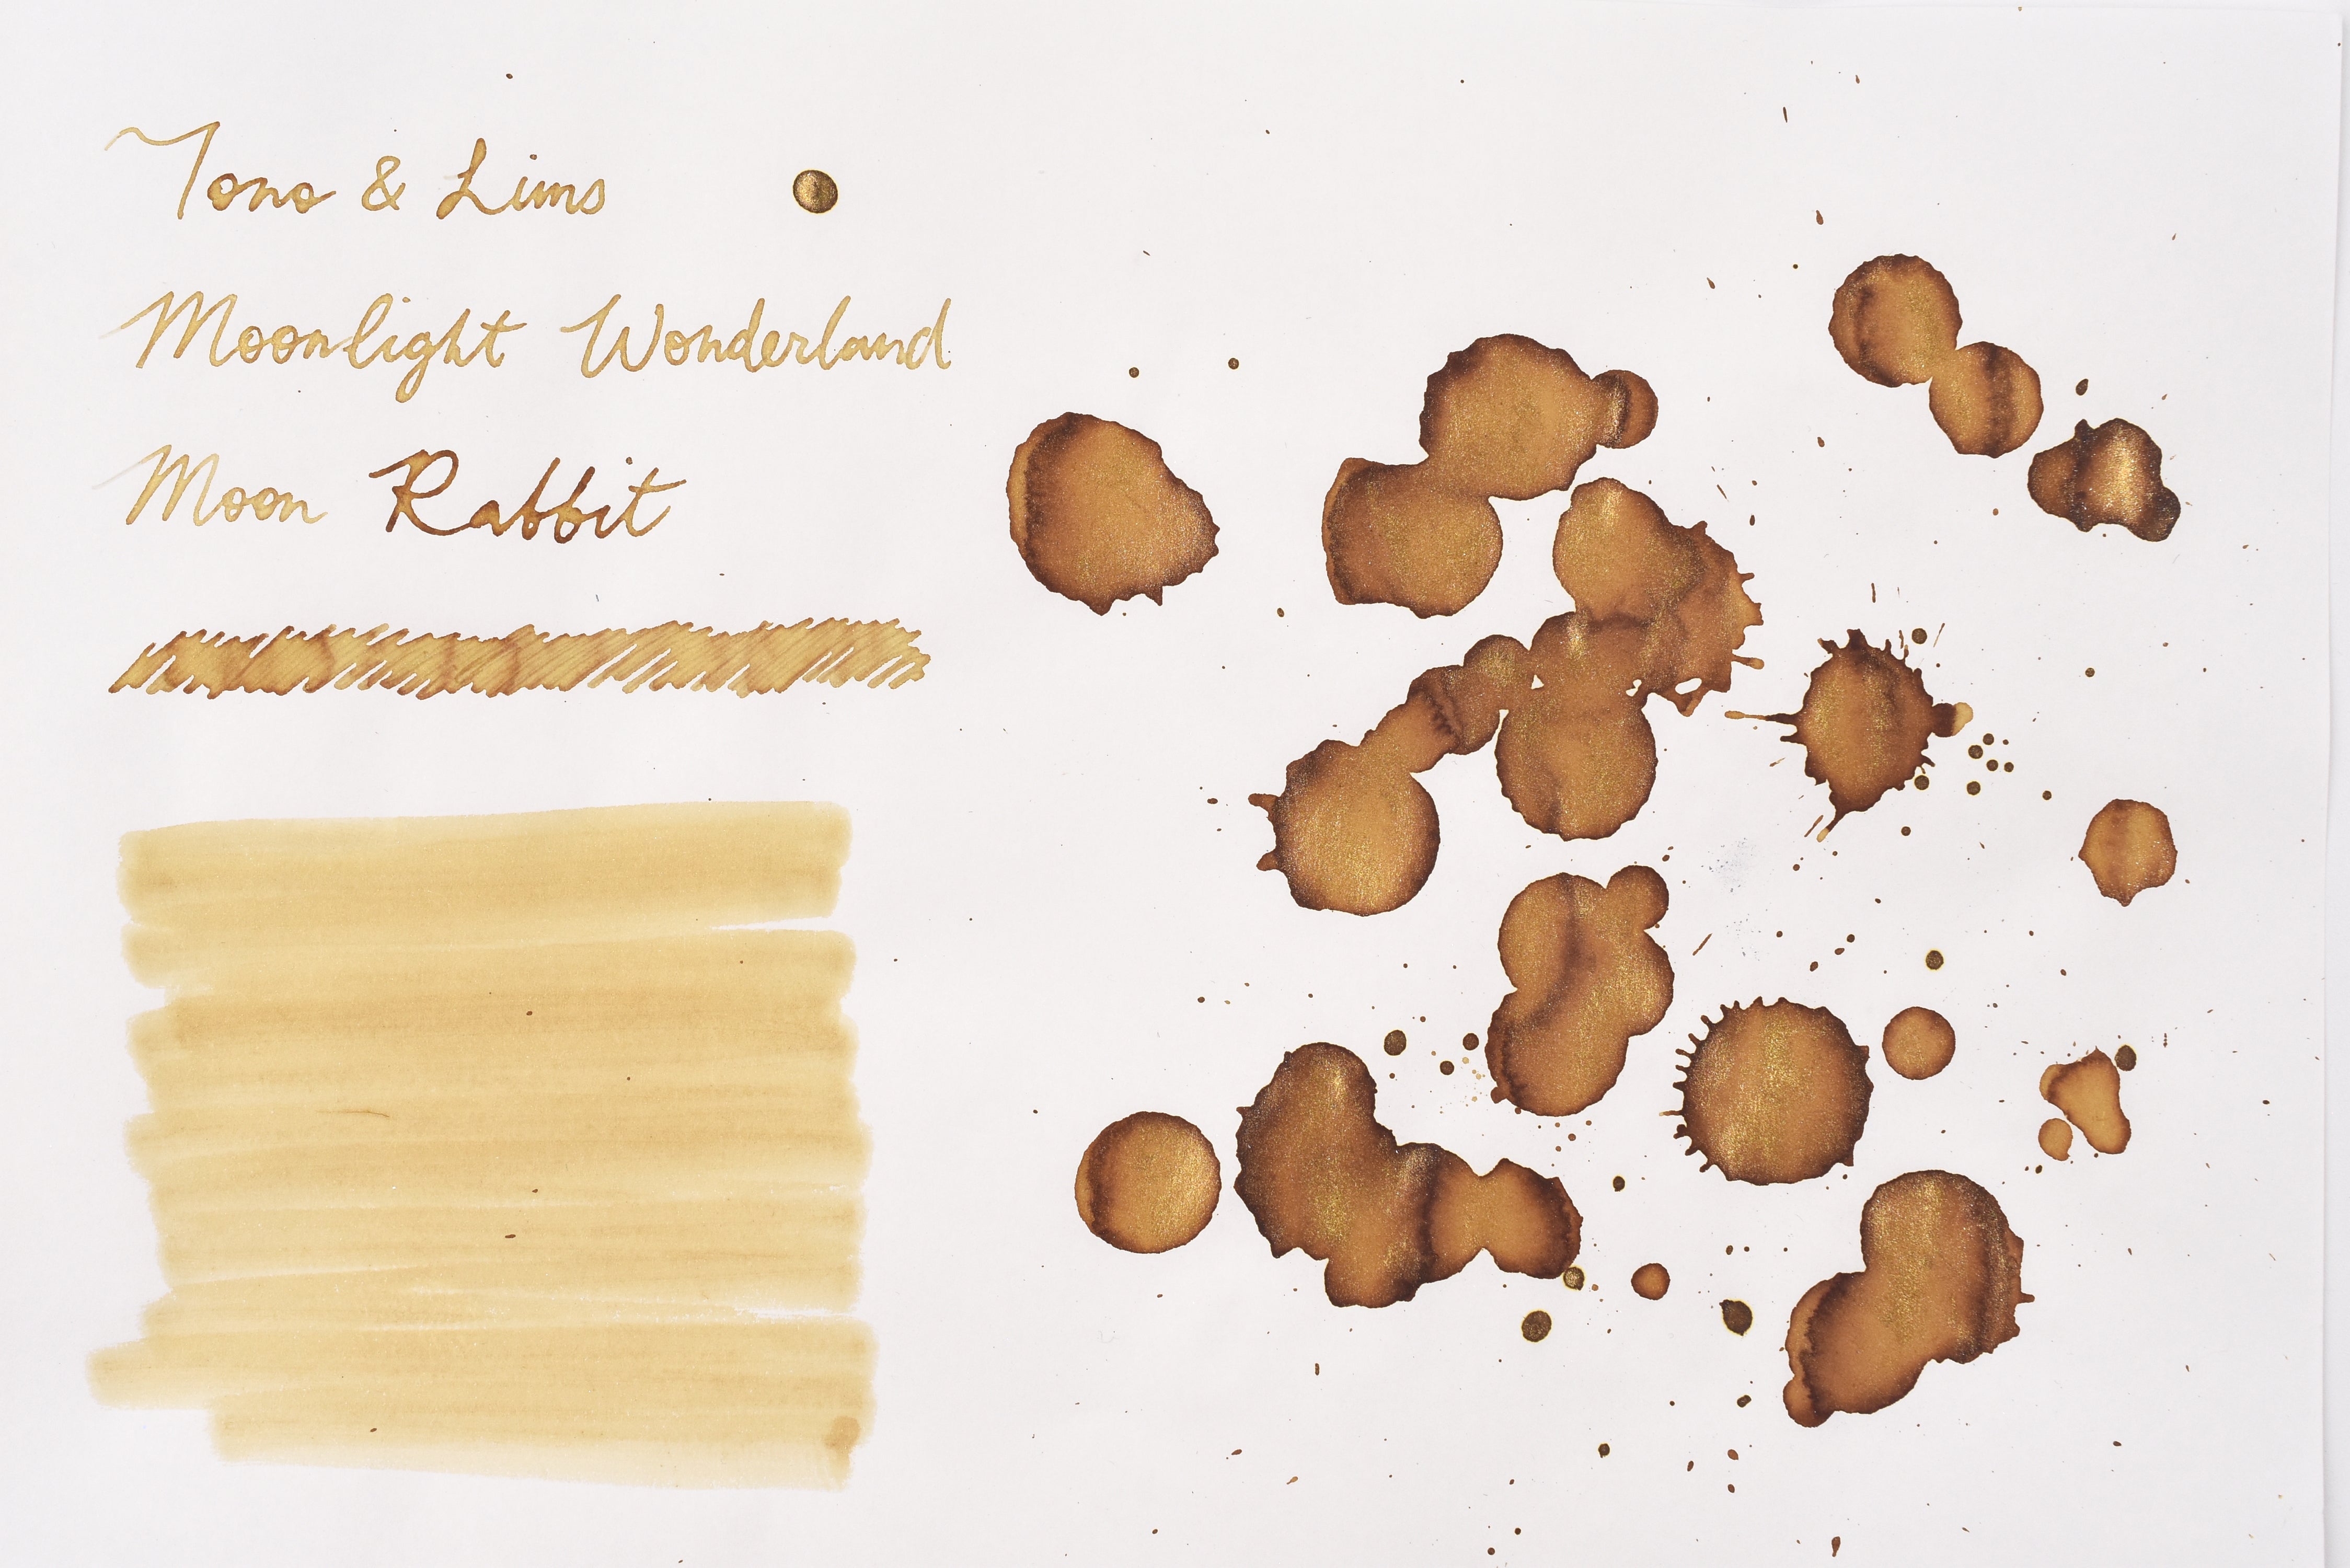 Tono & Lims
Moonlight Wonderland
Moon Rabbit